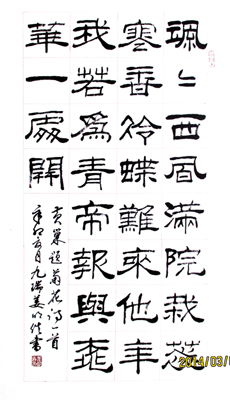 颯〻西風滿院栽蕊
寒香冷蝶難來他年
我若爲青帝報與桃
華一處開
黄巢題菊花诗一首
辛卯月九姜明書
2014/03/0